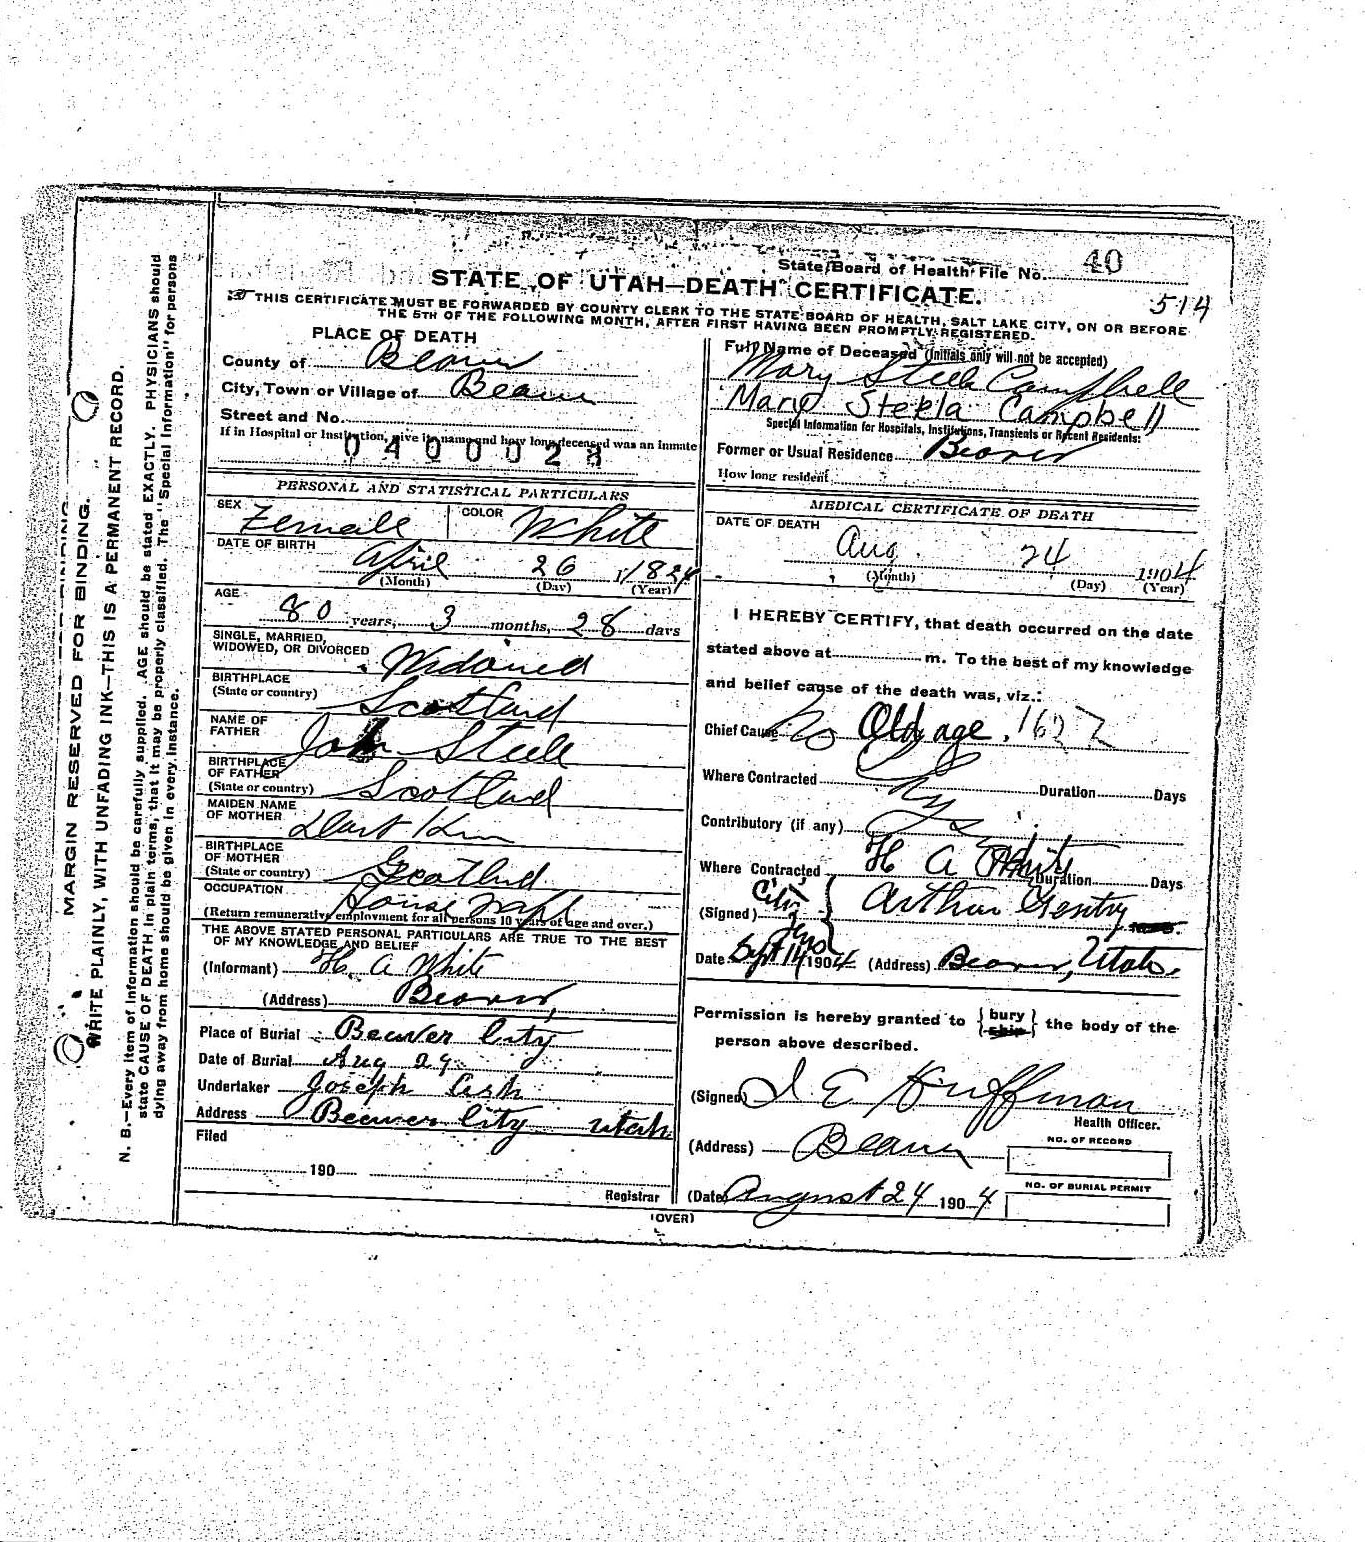 State Board of Health File No. 40
514
STATE OF UTAH—DEATH CERTIFICATE.
THIS CERTIFICATE MUST BE FORWARDED BY COUNTY CLERK TO THE STATE BOARD OF HEALTH, SALT LAKE CITY, ON OR BEFORE
THE 5TH OF THE FOLLOWING MONTH, AFTER FIRST HAVING BEEN PROMPTLY REGISTERED.
PLACE OF DEATH
County of Beaver
City, Town or Village of Beaver
Street and No.
If in Hospital or Institution, give its name and how long deceased was an inmate
0400023
PERSONAL AND STATISTICAL PARTICULARS
SEX Female COLOR White
DATE OF BIRTH
April 26 1824
(Month) (Day) (Year)
AGE
80 years, 3 months, 28 days
SINGLE, MARRIED,
WIDOWED, OR DIVORCED Widowed
BIRTHPLACE
(State or country) Scotland
NAME OF
FATHER John Steele
BIRTHPLACE
OF FATHER
(State or country) Scotland
MAIDEN NAME
OF MOTHER
BIRTHPLACE
OF MOTHER
(State or country) Scotland
OCCUPATION House
(Return remunerative employment for all persons 10 years of age and over.)
THE ABOVE STATED PERSONAL PARTICULARS ARE TRUE TO THE BEST
OF MY KNOWLEDGE AND BELIEF
(Informant) H. A White
(Address) Beaver,
Place of Burial Beaver City
Date of Burial Aug 29
Undertaker Joseph
Address Beaver City Utah
Filed
190
Registrar
Full Name of Deceased (Initials only will not be accepted)
Mary Steele Campbell
Mary Campbell
Special Information for Hospitals, Institutions, Transients or Recent Residents:
Former or Usual Residence Beaver
How long resident
MEDICAL CERTIFICATE OF DEATH
DATE OF DEATH
Aug. 24 1904
(Month) (Day) (Year)
I HEREBY CERTIFY, that death occurred on the date
stated above at m. To the best of my knowledge
and belief cause of the death was, viz.:
Chief Cause Old age.
Where Contracted Duration Days
Contributory (if any)
H A White
Where Contracted Duration Days
(Signed) Arthur Gentry
Date Sept 14 1904 (Address) Beaver, Utah.
Permission is hereby granted to {bury ship} the body of the
person above described.
(Signed) Huffman
Health Officer.
(Address) Beaver
NO. OF RECORD
NO. OF BURIAL PERMIT
(Date) August 24 1904
(OVER)
MARGIN RESERVED FOR BINDING.
WRITE PLAINLY, WITH UNFADING INK—THIS IS A PERMANENT RECORD.
N. B.—Every item of information should be carefully supplied. AGE should be stated EXACTLY. PHYSICIANS should
state CAUSE OF DEATH in plain terms, that it may be properly classified. The "Special Information" for persons
dying away from home should be given in every instance.